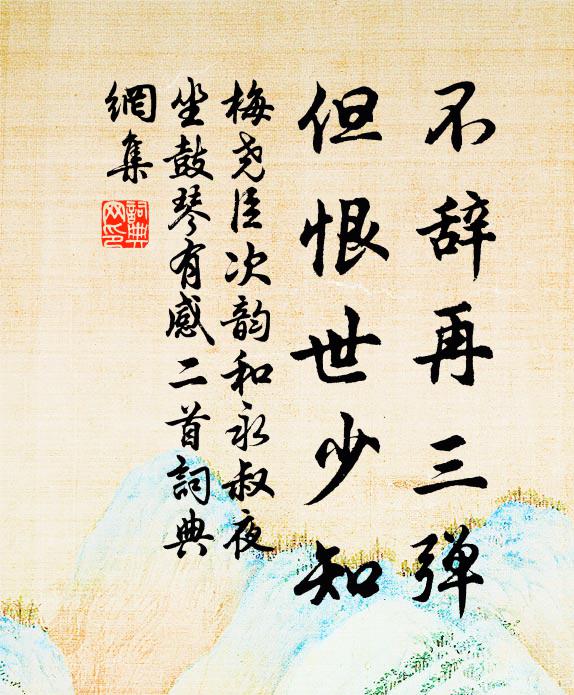 不辞再三弹
但恨世少知
梅尧臣次韵和永叔夜
坐鼓琴有感二首詞典
網集
詞典
网印